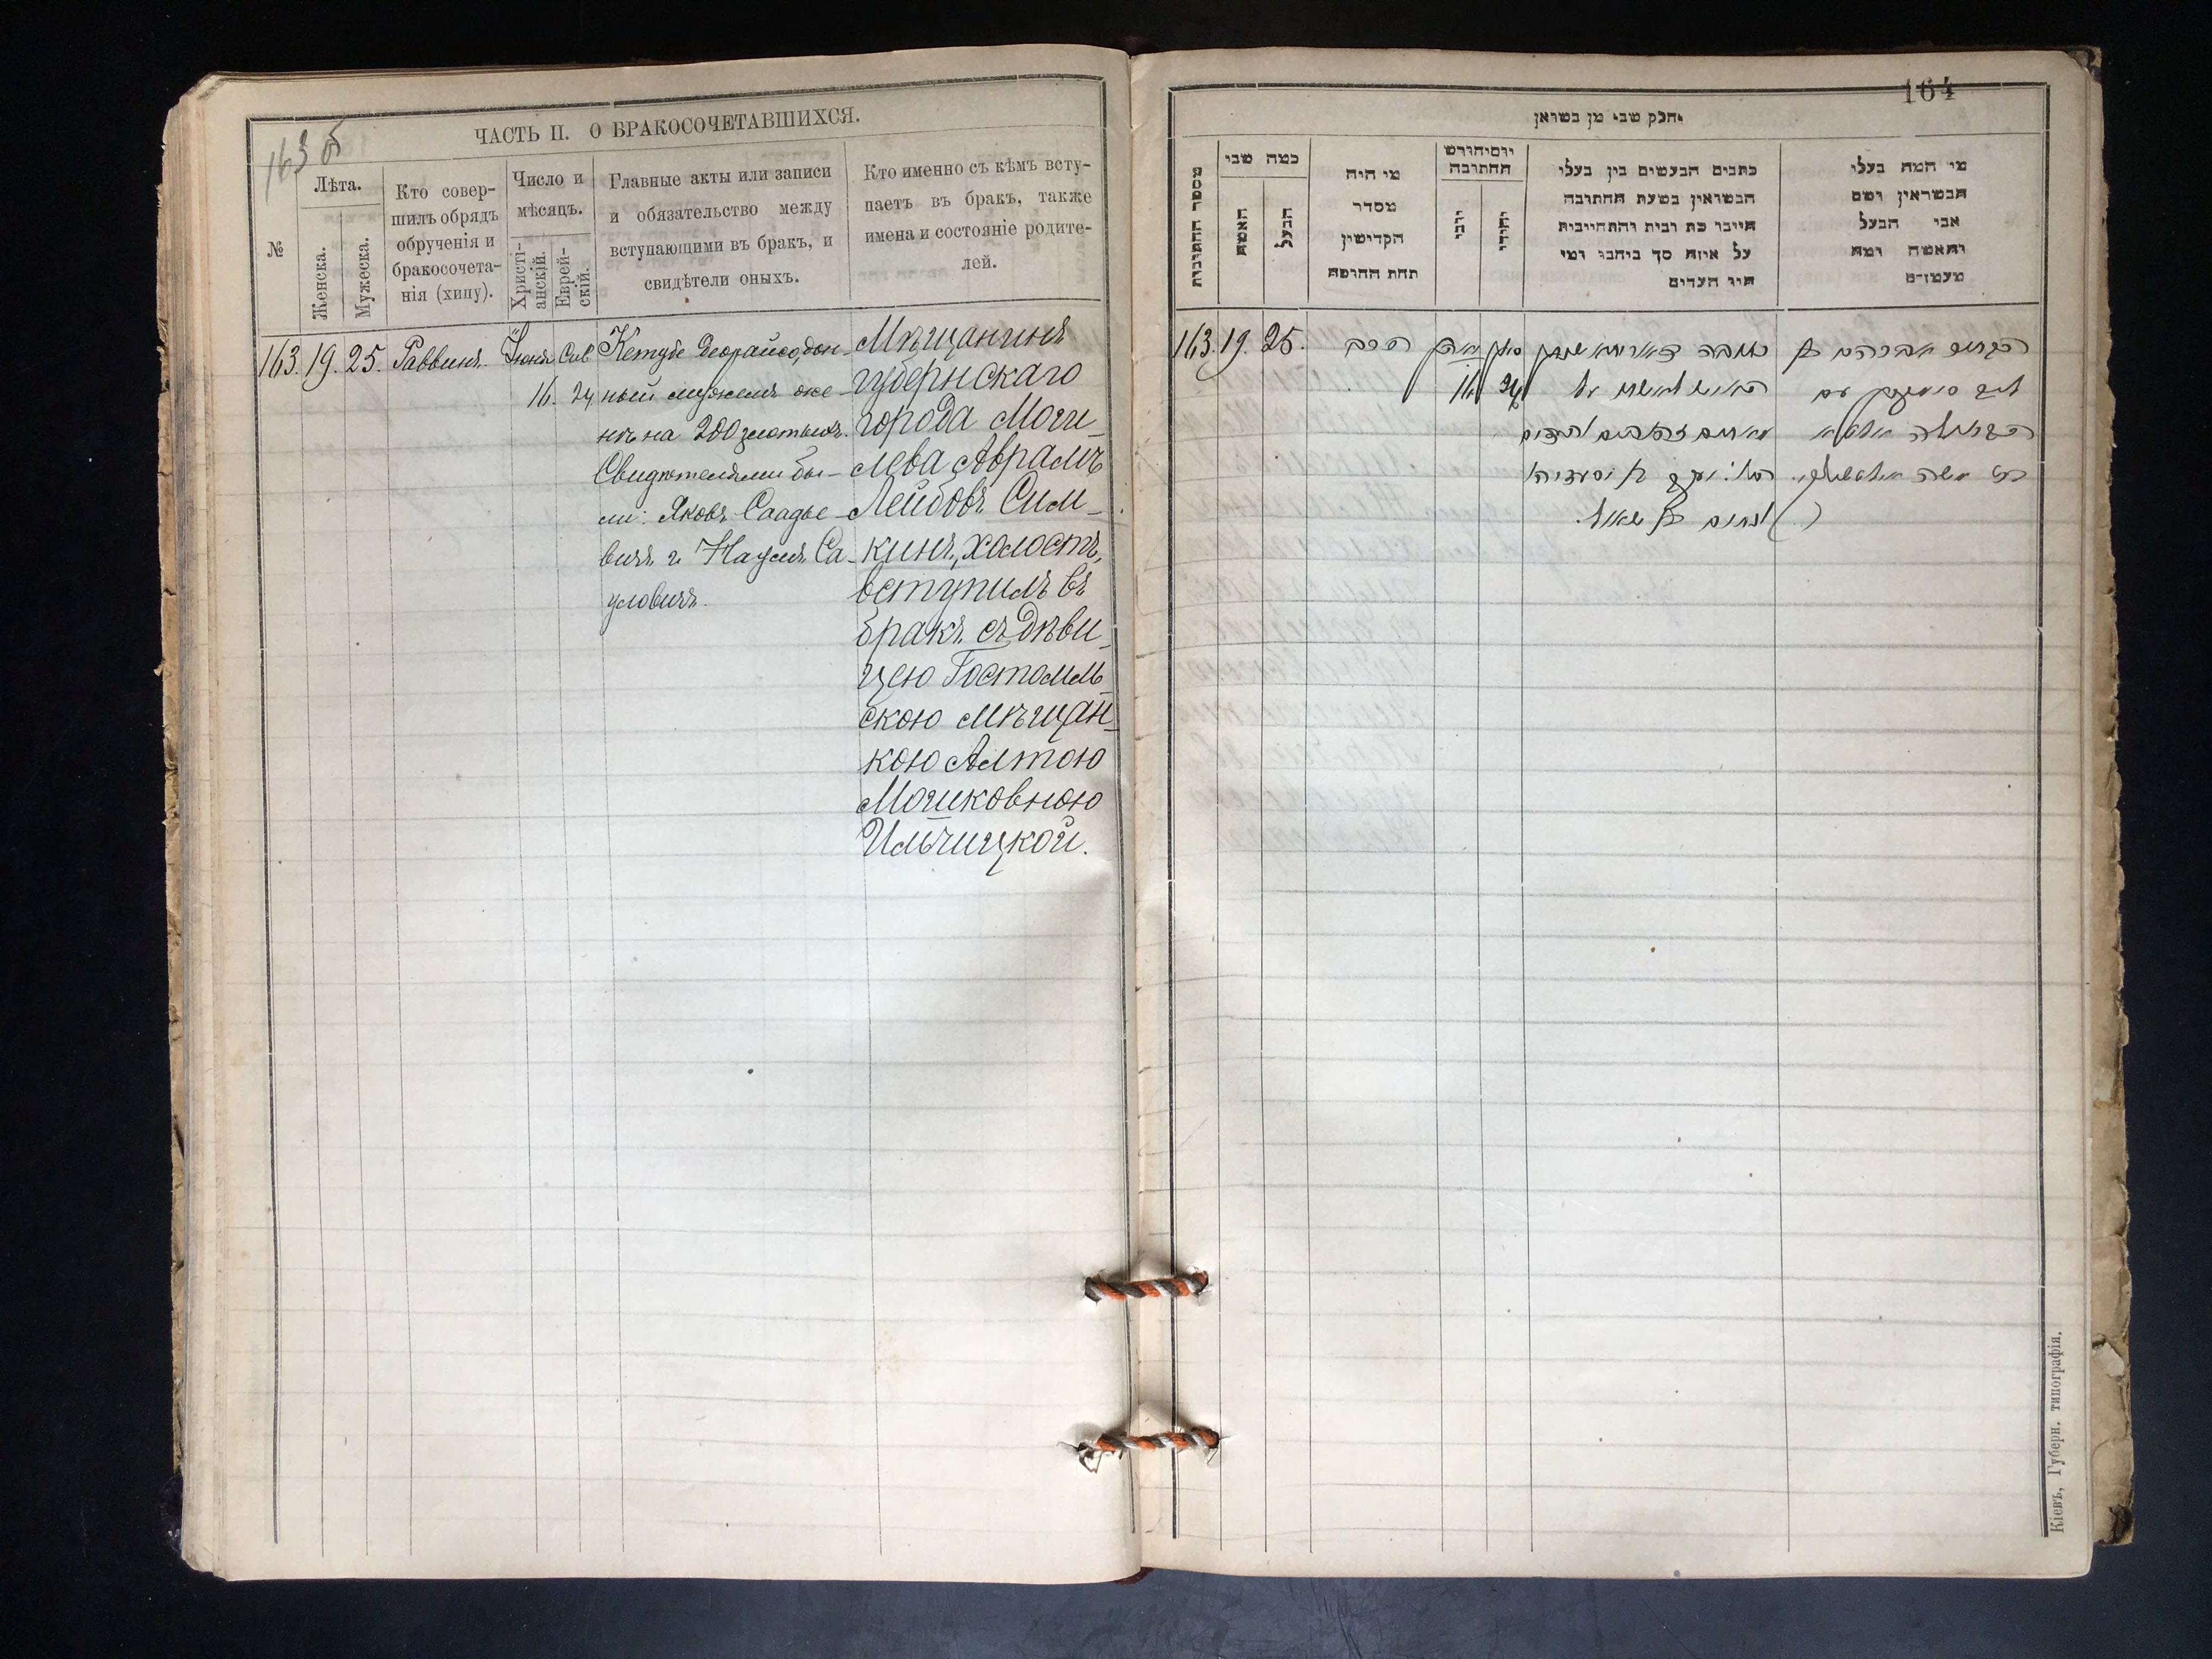 163 б
ЧАСТЬ II. О БРАКОСОЧЕТАВШИХСЯ.
№
Лѣта.
Женска.
Мужеска.
Кто совер-
шилъ обрядъ
обрученія и
бракосочета-
нія (хипу).
Число и
мѣсяцъ.
Христі-
анскій.
Еврей-
скій.
Главные акты или записи
и обязательство между
вступающими въ бракъ, и
свидѣтели оныхъ.
Кто именно съ кѣмъ всту-
паетъ въ бракъ, также
имена и состояніе родите-
лей.
163. 19. 25. Раввинъ.
Іюня
16.
Сив
24
Кетубе Деорайсо, дан-
ный мужемъ же-
нѣ на 200 злотыхъ.
Свидѣтелями бы-
ли: Яковъ Саадье-
вичъ и Наумъ Са-
уловичъ.
Мѣщанинъ
губернскаго
города Моги-
лева Аврамъ
Лейбовъ Сим-
кинъ, холостъ,
вступилъ въ
бракъ съ дѣви-
цею Гостомль-
скою мѣщан-
кою Алтою
Мошковною
Ильчицкой.
164
חלק שני מן נשואין
מספר החתונות
כמה שני
האשה
הבעל
מי היה
מסדר
הקדישין
תחת החופה
יום וחודש
החתונה
יוני
יהודי
כתבים הנעשים בין בעלי
הנשואין בשעת החתונה
היינו כת ובית והתחייבות
על איזה סך ביחבו ומי
היו העדים
מי המה בעלי
הנשואין ושם
אבי הבעל
והאשה ומה
מעמדם
163. 19. 25.
הרב
16
24
כתובה דאורייתא
מאתים זהובים
הבחור אברהם
הבתולה אלטא
Кіевъ, Губерн. типографія.